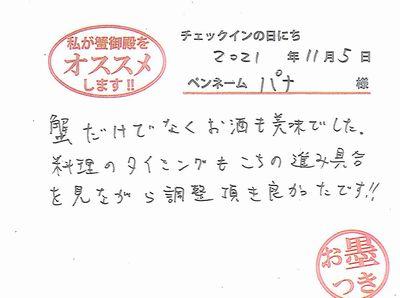 私が蟹御殿を
オススメ
します!!
チェックインの日にち
2021 年 11月 5日
ペンネーム パナ 様
蟹だけでなくお酒も美味でした。
料理のタイミングもこちの進み具合
を見ながら調整頂き良かったです!!
お墨
つき